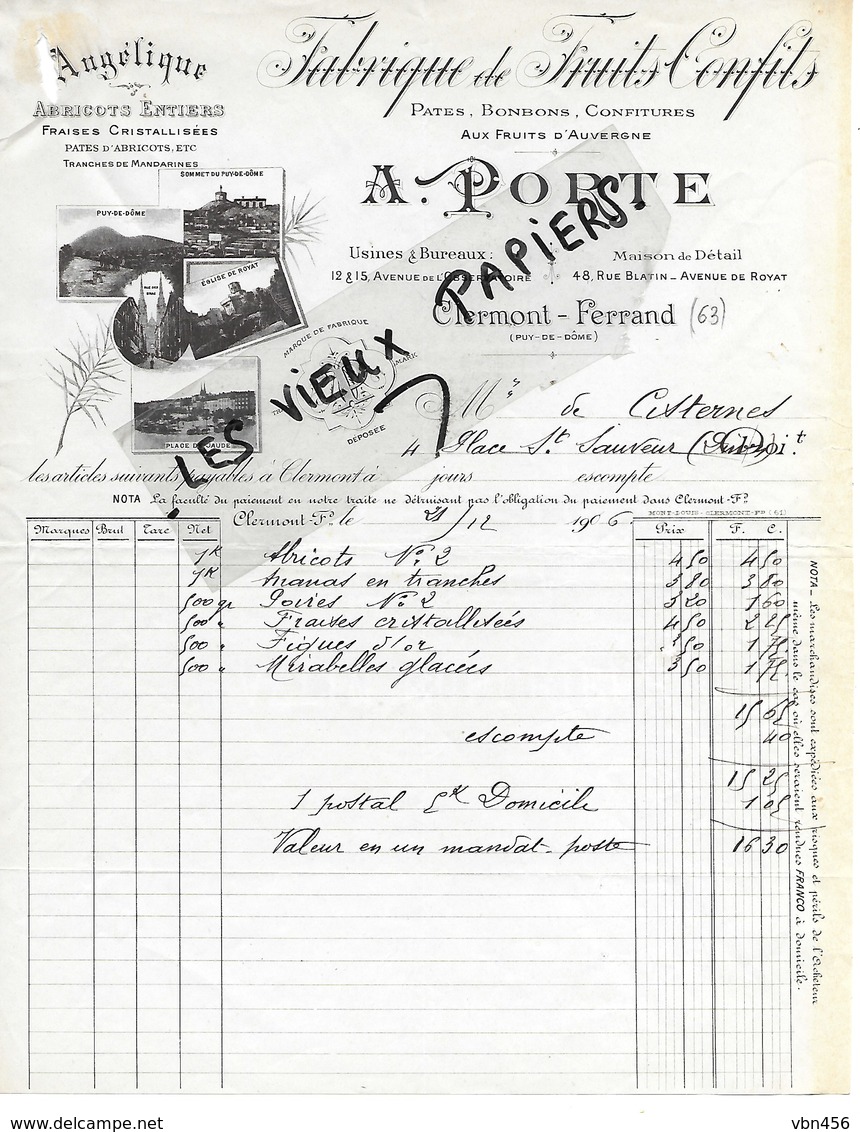 Angélique
ABRICOTS ENTIERS
FRAISES CRISTALLISÉES
PATES D'ABRICOTS, ETC
TRANCHES DE MANDARINES
Fabrique de Fruits Confits
PATES, BONBONS, CONFITURES
AUX FRUITS D'AUVERGNE
A. PORTE
Usines & Bureaux:
12 & 15, AVENUE DE L'OBSERVATOIRE
Maison de Détail
48, RUE BLATIN _ AVENUE DE ROYAT
Clermont-Ferrand (63)
(PUY-DE-DÔME)
SOMMET DU PUY-DE-DÔME
PUY-DE-DÔME
EGLISE DE ROYAT
PLACE DE JAUDE
MARQUE DE FABRIQUE
MARK
DÉPOSÉE
LES VIEUX PAPIERS.
M de Cisternes
4 Place St. Sauveur
les articles suivants payables à Clermont à jours escompte
NOTA La faculté du paiement en notre traite ne détruisant pas l'obligation du paiement dans Clermont-Fd.
MONT-LOUIS-CLERMONT-FD (61)
Clermont-Fd. le 21/12 1906
Marques Brut Tare Net Prix F. C.
1K Abricots No. 2 4 50 4 50
1K Ananas en tranches 3 80 3 80
500 gr Poires No. 2 3 20 1 60
500 " Fraises cristallisées 4 50 2 25
500 " Figues d'or 3 50 1 75
500 " Mirabelles glacées 3 50 1 75
15 65
escompte 40
15 25
1 postal 5K Domicile 1 05
Valeur en un mandat-poste 16 30
NOTA _ Les marchandises sont expédiées aux risques et périls de l'Acheteur
même dans le cas où elles seraient rendues FRANCO à domicile.
delcampe.net
vbn456